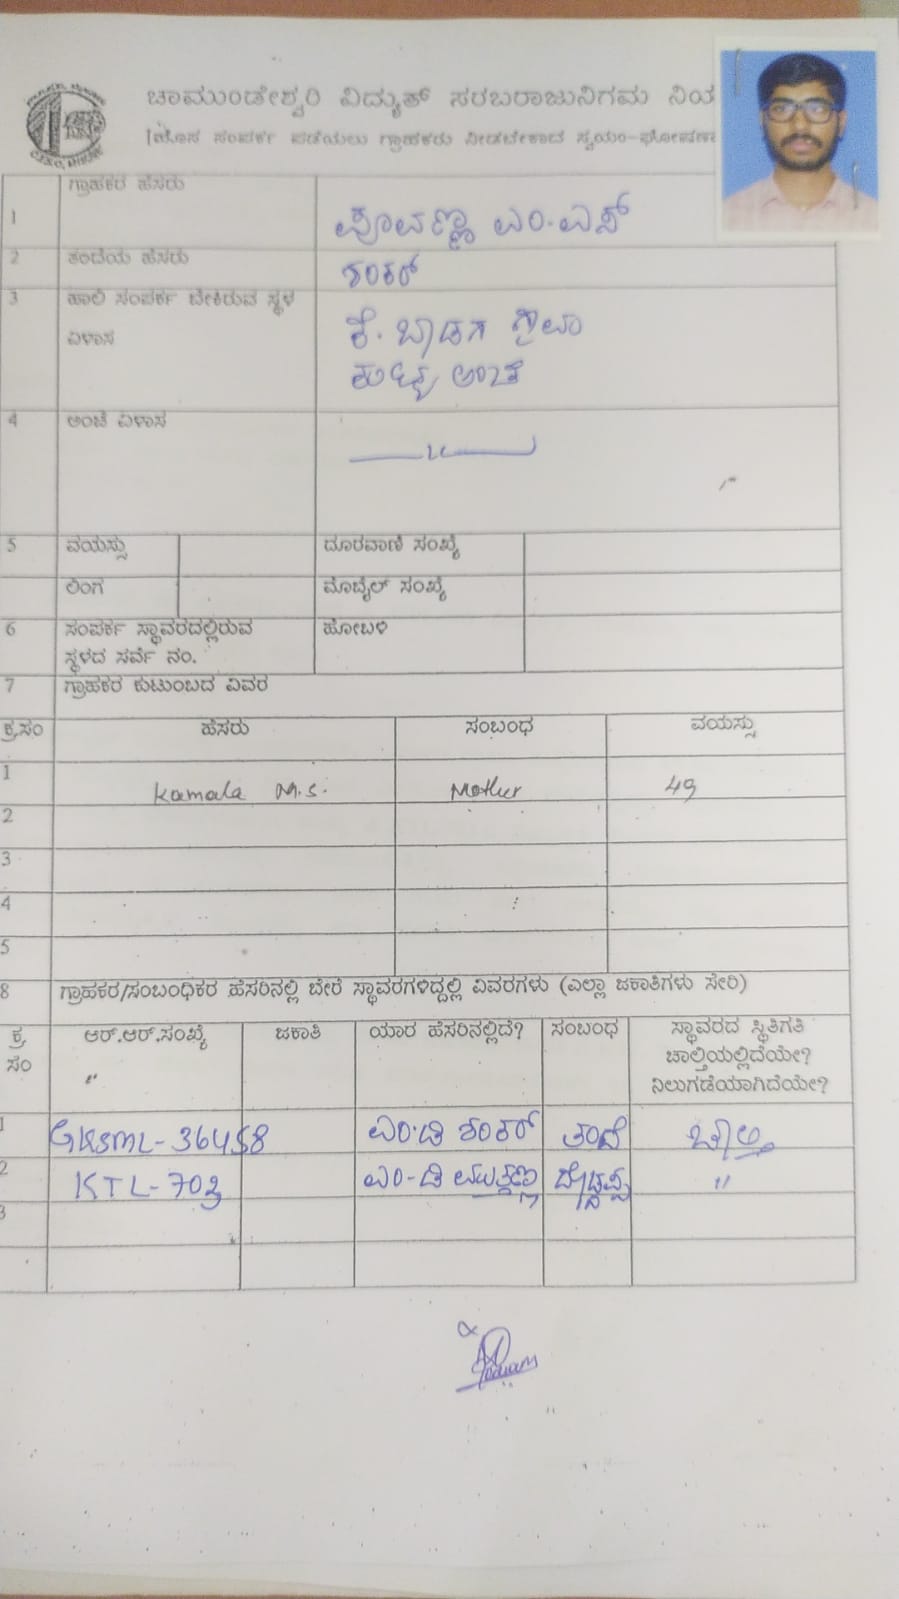 ಚಾಮುಂಡೇಶ್ವರಿ ವಿದ್ಯುತ್ ಸರಬರಾಜುನಿಗಮ ನಿಯ
(ಹೊಸ ಸಂಪರ್ಕ ಪಡೆಯಲು ಗ್ರಾಹಕರು ನೀಡಬೇಕಾದ ಸ್ವಯಂ-ಘೋಷಣಾ
1 ಗ್ರಾಹಕರ ಹೆಸರು ಪೂವಣ್ಣ ಎಂ.ಎಸ್
2 ತಂದೆಯ ಹೆಸರು ಶಂಕರ್
3 ಹಾಲಿ ಸಂಪರ್ಕ ಬೇಕಿರುವ ಸ್ಥಳ ವಿಳಾಸ ಕೆ. ಬಾಡಗ ಗ್ರಾಮ
ಅಂಚೆ
4 ಅಂಚೆ ವಿಳಾಸ —〃—
5 ವಯಸ್ಸು ದೂರವಾಣಿ ಸಂಖ್ಯೆ
ಲಿಂಗ ಮೊಬೈಲ್ ಸಂಖ್ಯೆ
6 ಸಂಪರ್ಕ ಸ್ಥಾವರದಲ್ಲಿರುವ ಹೋಬಳಿ
ಸ್ಥಳದ ಸರ್ವೆ ನಂ.
7 ಗ್ರಾಹಕರ ಕುಟುಂಬದ ವಿವರ
ಕ್ರ.ಸಂ ಹೆಸರು ಸಂಬಂಧ ವಯಸ್ಸು
1 Kamala M.S. Mother 49
2
3
4
5
8 ಗ್ರಾಹಕರ/ಸಂಬಂಧಿಕರ ಹೆಸರಿನಲ್ಲಿ ಬೇರೆ ಸ್ಥಾವರಗಳಿದ್ದಲ್ಲಿ ವಿವರಗಳು (ಎಲ್ಲಾ ಜಕಾತಿಗಳು ಸೇರಿ)
ಕ್ರ ಆರ್.ಆರ್.ಸಂಖ್ಯೆ ಜಕಾತಿ ಯಾರ ಹೆಸರಿನಲ್ಲಿದೆ? ಸಂಬಂಧ ಸ್ಥಾವರದ ಸ್ಥಿತಿಗತಿ
ಸಂ ಚಾಲ್ತಿಯಲ್ಲಿದೆಯೇ?
ನಿಲುಗಡೆಯಾಗಿದೆಯೇ?
1 36458 ಎಂ.ಡಿ ಶಂಕರ್ ತಂದೆ ಚಾಲ್ತಿ
2 KTL-703 ಎಂ-ಡಿ ದೊಡ್ಡಪ್ಪ 〃
3